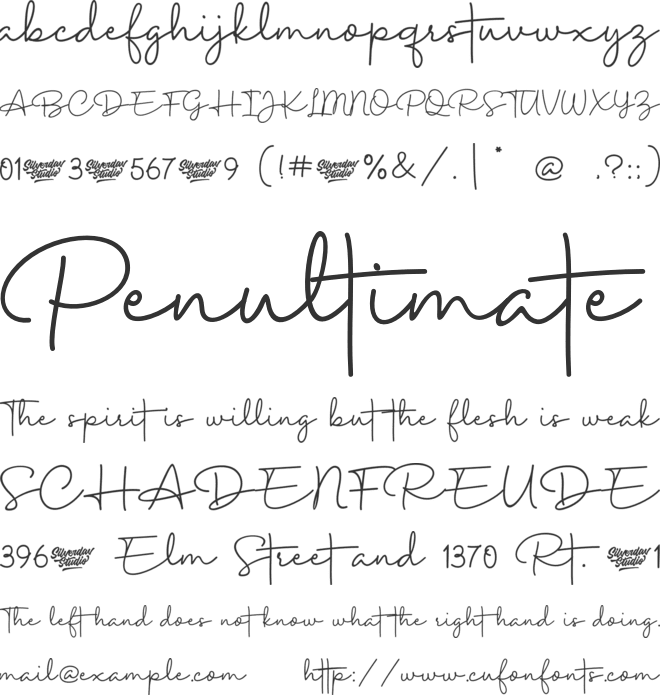 abcdefghijklmnopqrstuvwxyz
ABCDEFGHIJKLMNOPQRSTUVWXYZ
01 Silverday Studio 3 Silverday Studio 567 Silverday Studio 9 (!# Silverday Studio %&/.|* @ .?::)
Penultimate
The spirit is willing but the flesh is weak
SCHADENFREUDE
396 Silverday Studio Elm Street and 1370 Rt. Silverday Studio 1
The left hand does not know what the right hand is doing.
mail@example.com http://www.cufonfonts.com